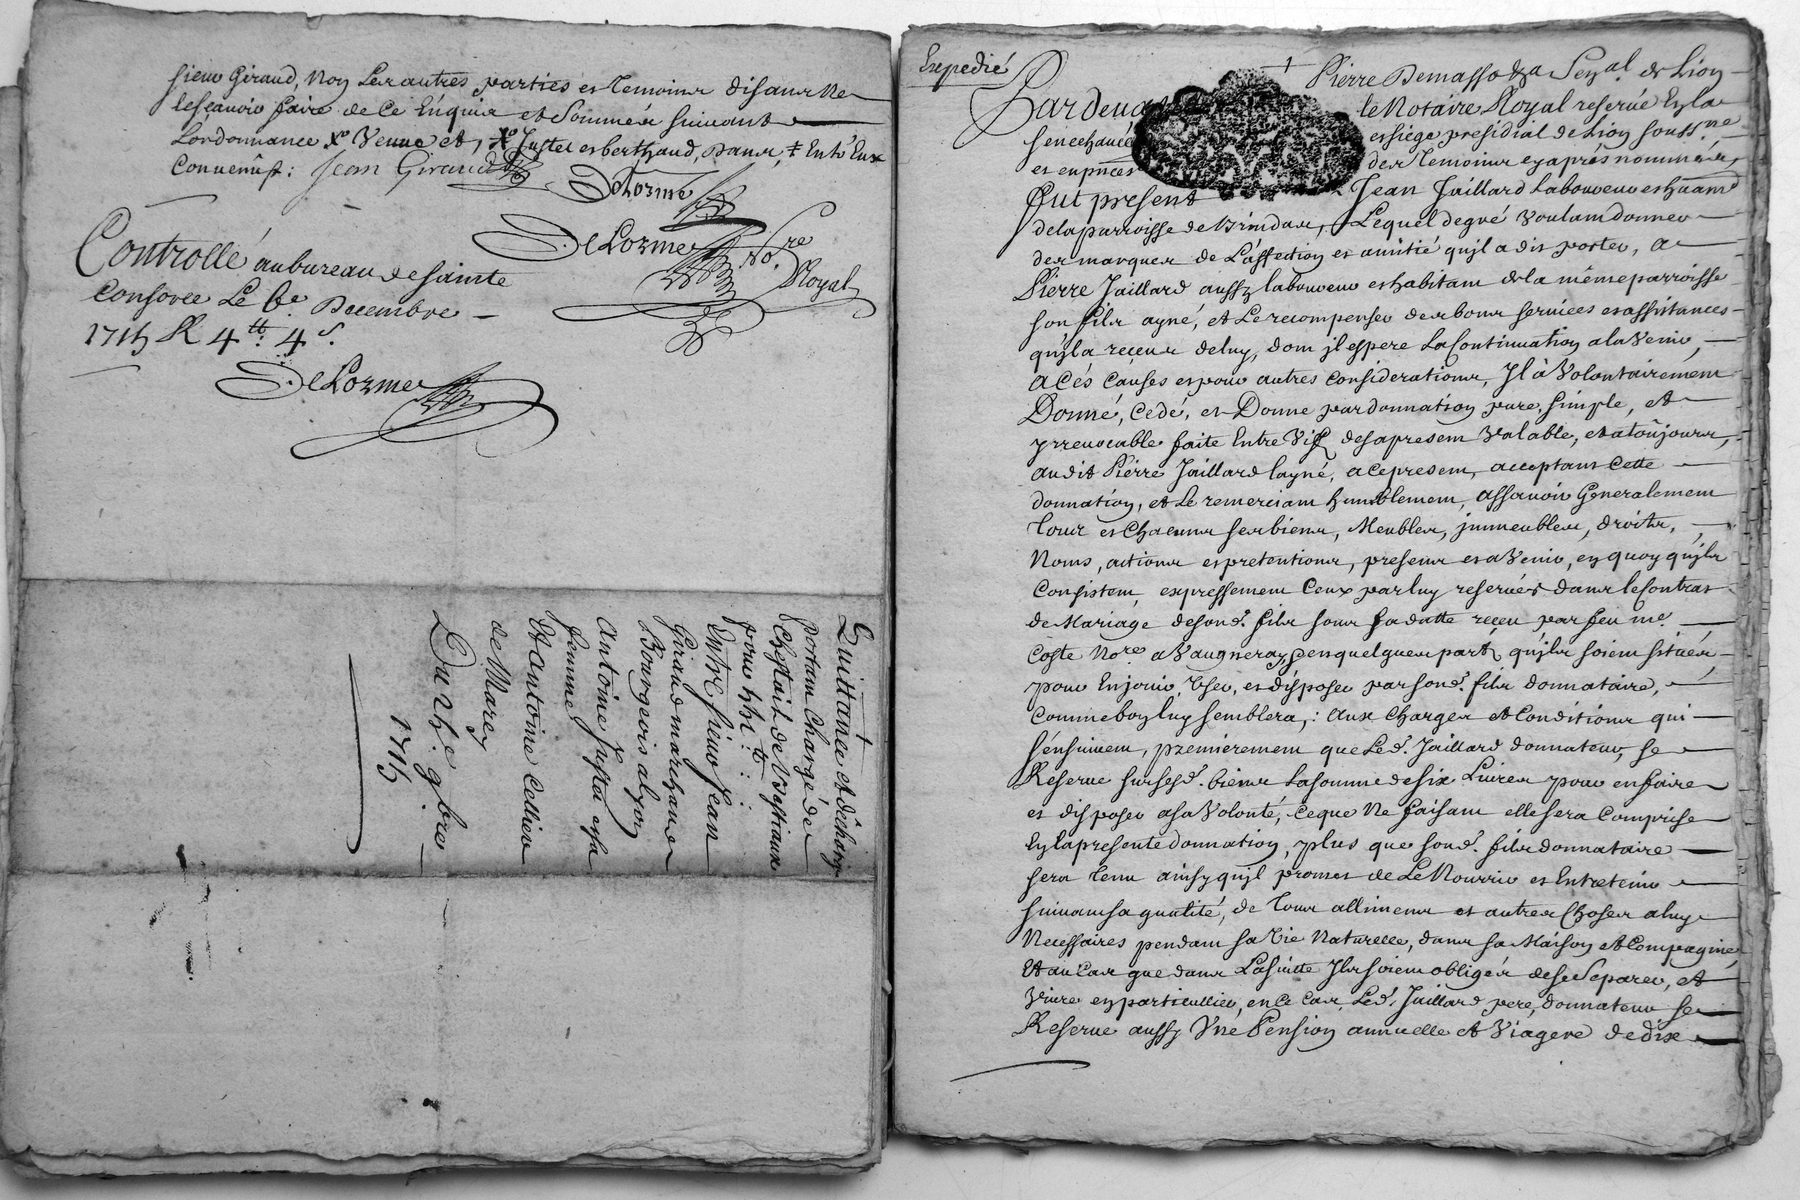 sieur Giraud, Non Les autres parties et temoins disans ne
le sçavoir faire de ce Enquis et Sommés suivant
Lordonnance
convenûs: Jean Giraud
Delorme
DeLorme No.re Royal
Controllé au bureau de sainte
Consorce Le 6.e Decembre
1715 R 4 tt: 4 s.
DeLorme
Quittance et décharge
portant Chargé de
Cheptail de bestiaux
pour
Entre sieur Jean
Giraud marchand
Bourgeois a lyon
Antoine Justa et sa
femme
Et Antoine Cellier
de Marcy
Du 25.e 9bre
1715
Expedié
1
Pierre Demasso Sen.al de Lion
Pardeua le Notaire Royal reservé En la
Senechaucé et siege presidial de Lion souss.né
et en pnces des temoins cy aprés nommés,
Fut present Jean Jaillard Laboureur et habitant
de la parroisse de Brindas, Lequel de gré voulant donner
des marques de L'affection et amitié qu'jl a dis porter, a
Pierre Jaillard aussy laboureur et habitant de la même parroisse
son fils ayné, et Le recompenser des bons services et assistances
qu'jl a reçeus de luy, dont jl espere La Continuation a lavenir,
a cés Causes et pour autres considerations, Jl à Volontairement
Donné, Cedé, et Donne par donnation pure, simple, et
yrrevocable faite Entre Vifs des a present Valable, et a toûjours,
audit Piérre Jaillard l'ayné, a ce present, acceptant Cette
donnation, et Le remerciant humblement, assavoir Generalement
tous et Chacuns ses biens, Meubles, jmmeubles, droits,
Noms, actions et pretentions, presens et a Venir, en quoy qu'jls
Consistent, expressement Ceux par luy reservés dans le Contrat
de Mariage de son d. fils sous sa datte reçeu par feu me.
Coste No.re a Vaugneray, et en quelques parts qu'jls soient situés,
pour En jouir, Vser, et disposer par son d. fils donnataire,
Comme bon luy semblera,: aux Charges et Conditions qui
s'énsuivent, premierement que Le d. Jaillard donnateur, se
Reserve sur ses d. biens La somme de six Livres pour en faire
et disposer a sa Volonté, Ce que Ne faisant elle sera Comprise
En la presente donnation, plus que son d. fils donnataire
sera tenu ainsy qu'jl promet de Le Nourrir et Entretenir
suivant sa qualité, de tous allimens et autres Choses a luy
Necessaires pendant sa Vie Naturelle, dans sa Maison et Compagnie,
Et au Cas que dans La suitte Jls soient obligés de se Separer, et
Vivre en particullier, en Ce Cas, Le d. Jaillard pere, donnateur se
Reserve aussy Vne Pension annuelle et Viagere de dix